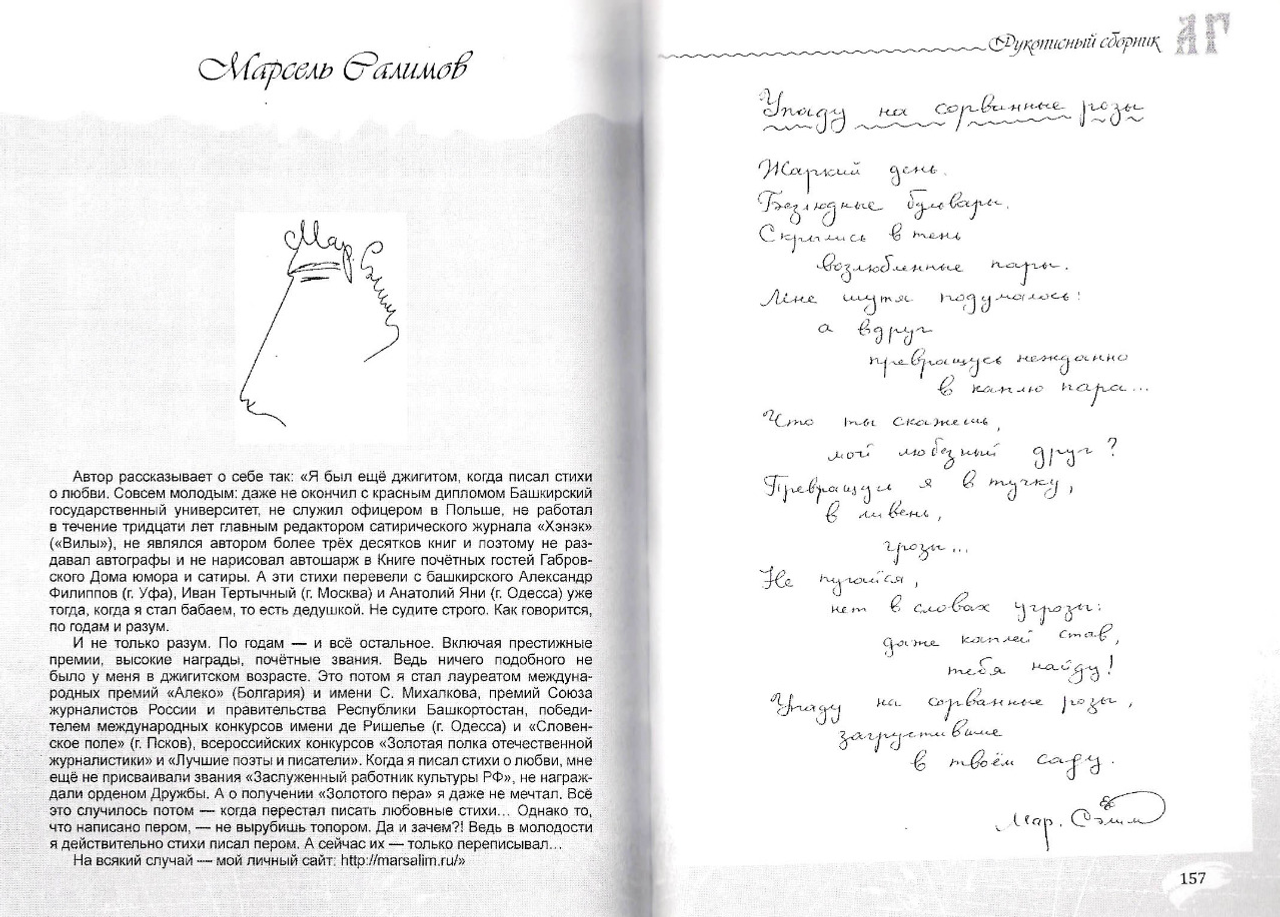 Марсель Салимов
Мар. Сэлим
Автор рассказывает о себе так: «Я был ещё джигитом, когда писал стихи
о любви. Совсем молодым: даже не окончил с красным дипломом Башкирский
государственный университет, не служил офицером в Польше, не работал
в течение тридцати лет главным редактором сатирического журнала «Хэнэк»
(«Вилы»), не являлся автором более трёх десятков книг и поэтому не раз-
давал автографы и не нарисовал автошарж в Книге почётных гостей Габров-
ского Дома юмора и сатиры. А эти стихи перевели с башкирского Александр
Филиппов (г. Уфа), Иван Тертычный (г. Москва) и Анатолий Яни (г. Одесса) уже
тогда, когда я стал бабаем, то есть дедушкой. Не судите строго. Как говорится,
по годам и разум.
И не только разум. По годам — и всё остальное. Включая престижные
премии, высокие награды, почётные звания. Ведь ничего подобного не
было у меня в джигитском возрасте. Это потом я стал лауреатом междуна-
родных премий «Алеко» (Болгария) и имени С. Михалкова, премий Союза
журналистов России и правительства Республики Башкортостан, победи-
телем международных конкурсов имени де Ришелье (г. Одесса) и «Словен-
ское поле» (г. Псков), всероссийских конкурсов «Золотая полка отечественной
журналистики» и «Лучшие поэты и писатели». Когда я писал стихи о любви, мне
ещё не присваивали звания «Заслуженный работник культуры РФ», не награж-
дали орденом Дружбы. А о получении «Золотого пера» я даже не мечтал. Всё
это случилось потом — когда перестал писать любовные стихи... Однако то,
что написано пером, — не вырубишь топором. Да и зачем?! Ведь в молодости
я действительно стихи писал пером. А сейчас их — только переписывал...
На всякий случай — мой личный сайт: http://marsalim.ru/»
Рукописный сборник АГ
Упаду на сорванные розы
Жаркий день.
Безлюдные бульвары.
Скрылись в тень
возлюбленные пары.
Мне шутя подумалось:
а вдруг
превращусь нежданно
в каплю пара...
Что ты скажешь,
мой любезный друг?
Превращусь я в тучку,
в ливень,
грозы...
Не пугайся,
нет в словах угрозы:
даже каплей став,
тебя найду!
Упаду на сорванные розы,
загрустившие
в твоём саду.
Мар. Сэлим
157